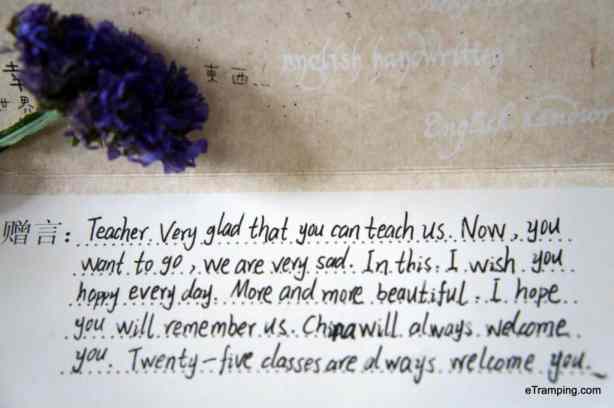 東西
世界
English handwritten
English
赠言：Teacher. Very glad that you can teach us. Now, you
want to go, we are very sad. In this. I wish you
happy every day. More and more beautiful. I hope
you will remember us. China will always welcome
you. Twenty-five classes are always welcome you.
eTramping.com